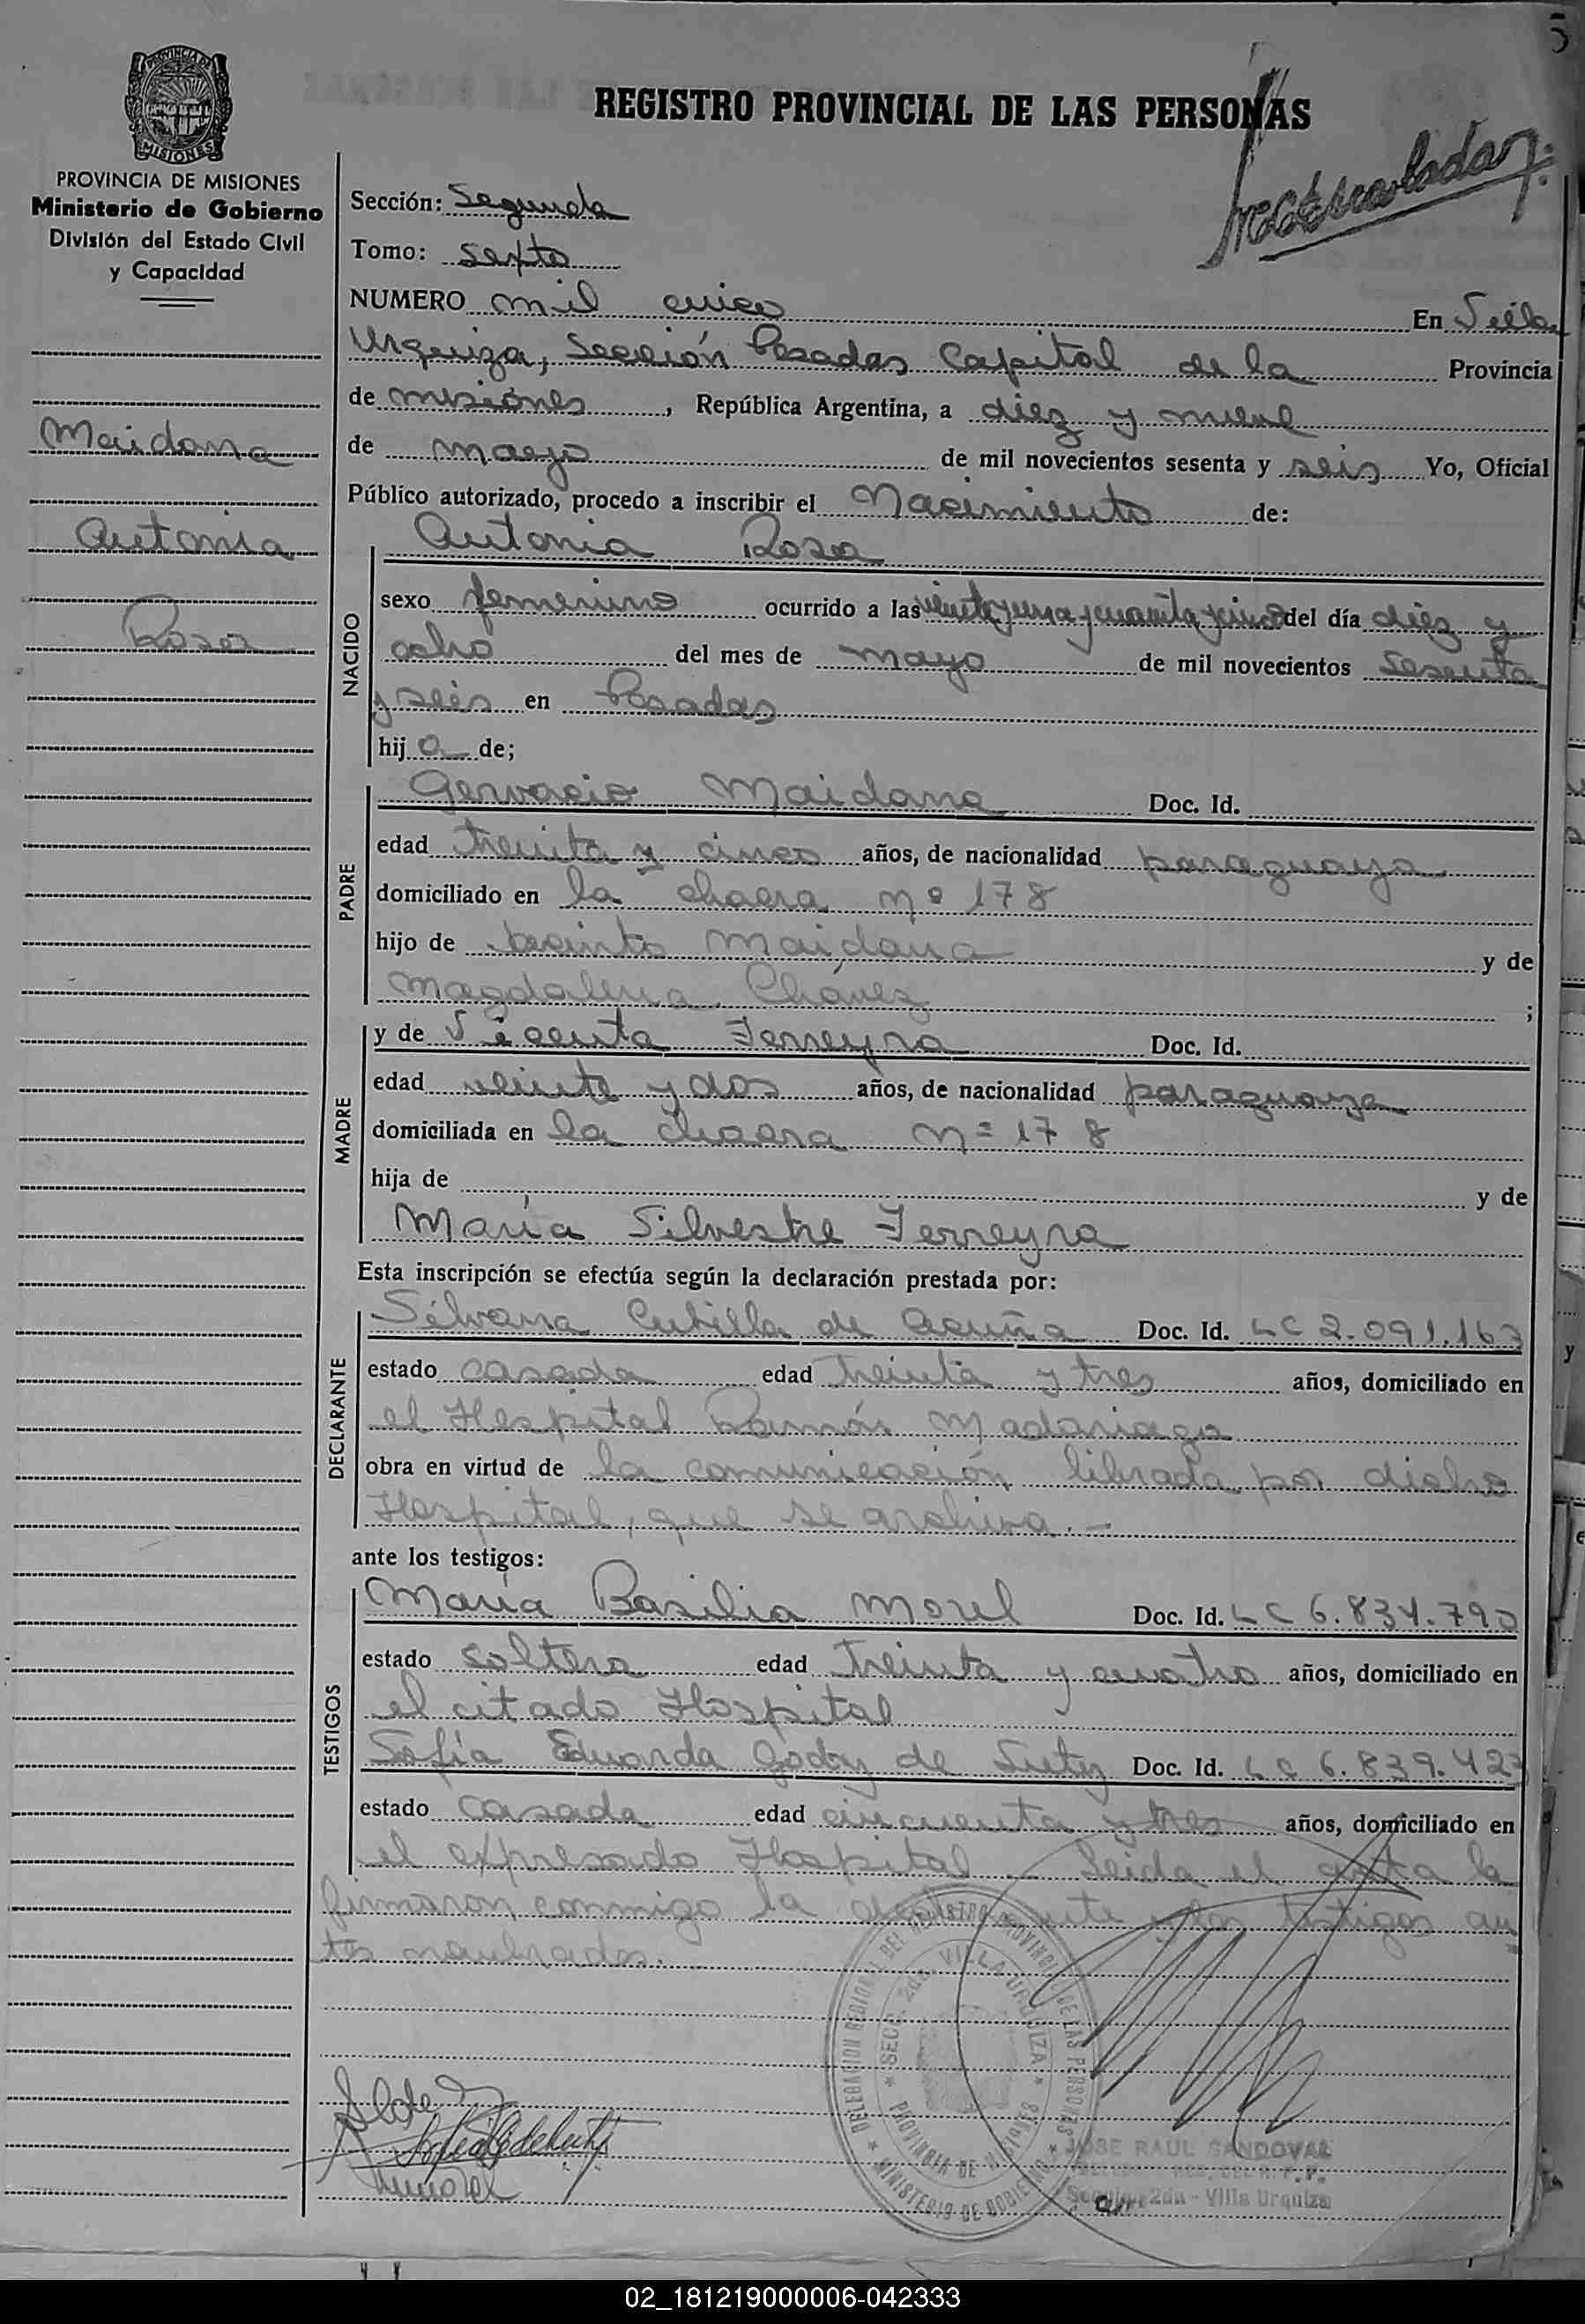 5
REGISTRO PROVINCIAL DE LAS PERSONAS
PROVINCIA DE MISIONES
Ministerio de Gobierno
División del Estado Civil
y Capacidad
Maidana
Antonia
Rosa
Sección: Segunda
Tomo: Sexto
NUMERO mil cinco En Villa
Urquiza, Sección Posadas Capital de la Provincia
de misiones, República Argentina, a diez y nueve
de mayo de mil novecientos sesenta y seis Yo, Oficial
Público autorizado, procedo a inscribir el Nacimiento de:
NACIDO
Antonia Rosa
sexo femenino ocurrido a las veinte y una y cuarenta y cinco del día diez y
ocho del mes de mayo de mil novecientos sesenta
y seis en Posadas
hija de;
PADRE
Gervacio Maidana Doc. Id.
edad treinta y cinco años, de nacionalidad paraguaya
domiciliado en la chacra nº 178
hijo de Jacinto Maidana y de
Magdalena Chávez ;
MADRE
y de Vicenta Ferreyra Doc. Id.
edad veinte y dos años, de nacionalidad paraguaya
domiciliada en la chacra nº 178
hija de y de
María Silvestre Ferreyra
Esta inscripción se efectúa según la declaración prestada por:
DECLARANTE
Silvana Cubilla de Acuña Doc. Id. LC 2.091.163
estado casada edad treinta y tres años, domiciliado en
el Hospital Ramón Madariaga
obra en virtud de la comunicación librada por dicho
Hospital, que se archiva.-
ante los testigos:
TESTIGOS
María Basilia Morel Doc. Id. LC 6.834.790
estado soltera edad treinta y cuatro años, domiciliado en
el citado Hospital
Sofía Eduarda Godoy de Doc. Id. LC 6.839.423
estado casada edad cincuenta y tres años, domiciliado en
el expresado Hospital. Leida el acta la
firmaron conmigo la declarante y los testigos an
tes nombrados.
DELEGACION REGIONAL DEL REGISTRO PROVINCIAL DE LAS PERSONAS
SECC. 2da. VILLA URQUIZA
PROVINCIA DE MISIONES
MINISTERIO DE GOBIERNO
JOSE RAUL SANDOVAL
2da - Villa Urquiza
02_181219000006-042333